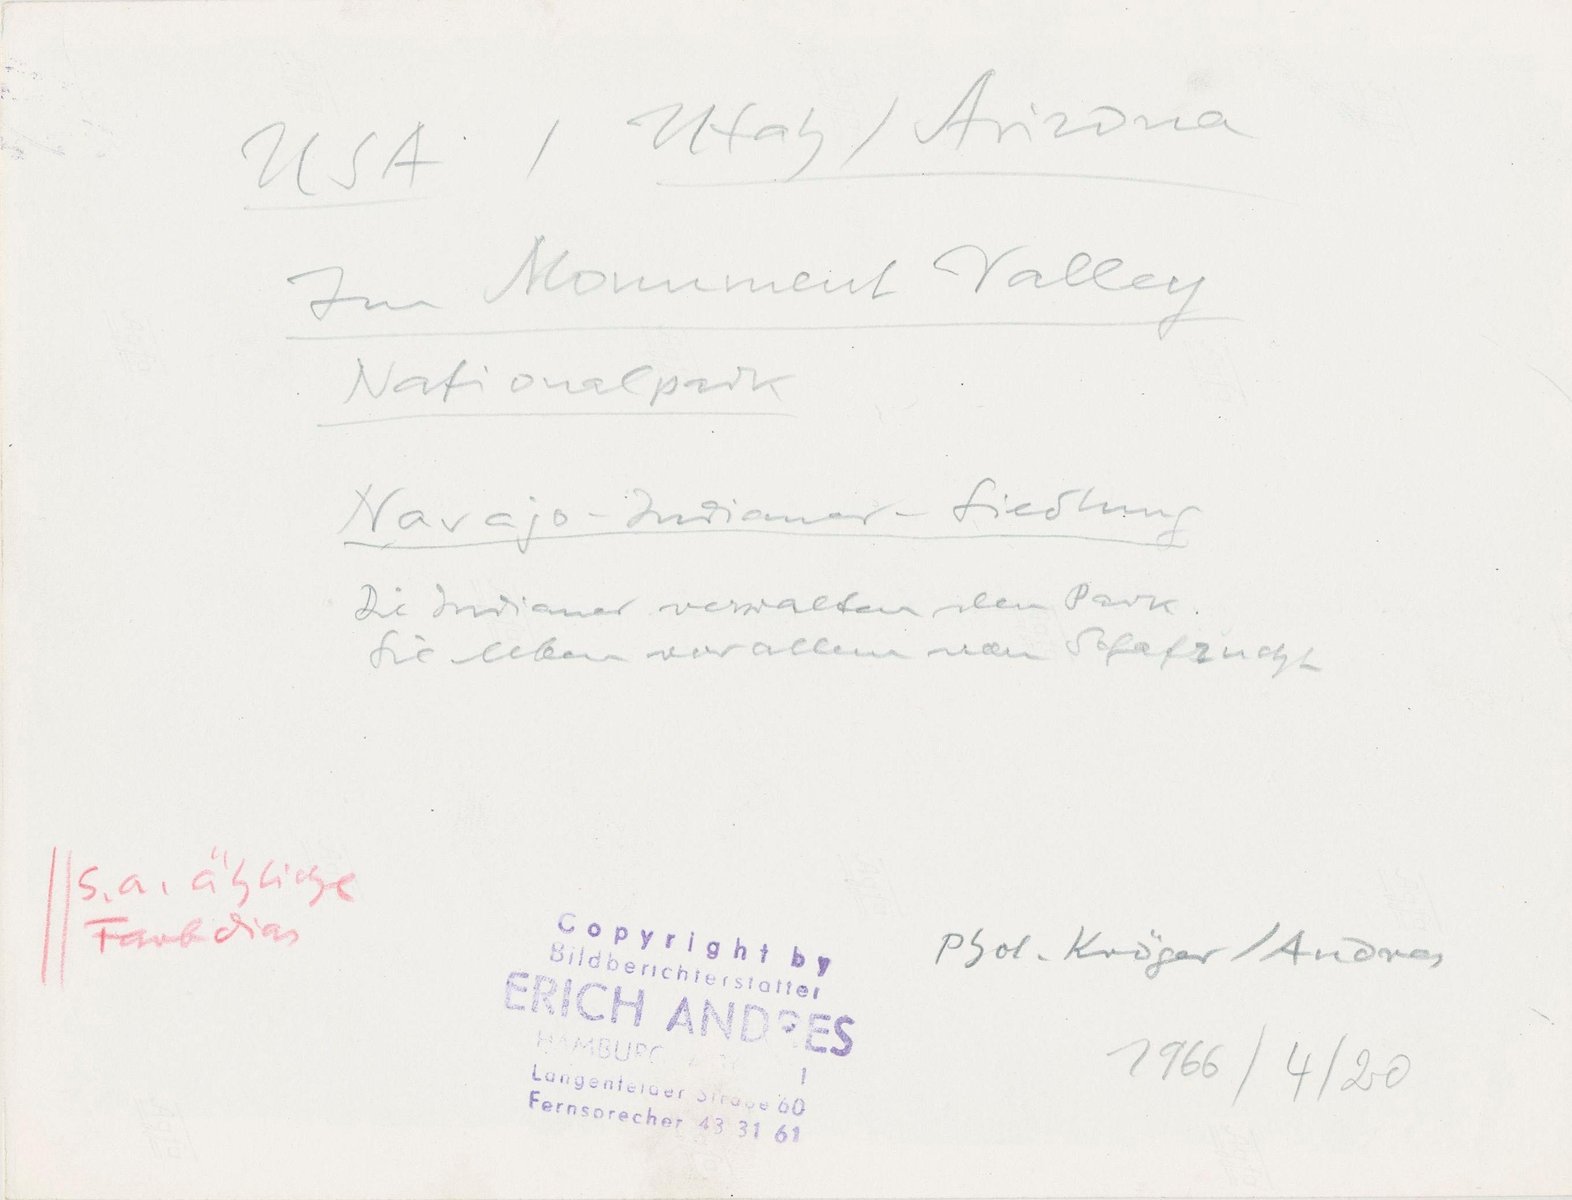 USA / Utah / Arizona
Im Monument Valley
Nationalpark
Navajo-Indianer-Siedlung
Die Indianer verwalten den Park.
Sie leben vor allem von Schafzucht
s. a. ähliche
Farbdias
Copyright by
Bildberichterstatter
ERICH ANDRES
HAMBURG 1
Langenfelder Straße 60
Fernsprecher 43 31 61
Phot. Kröger / Andres
1966 / 4 / 20